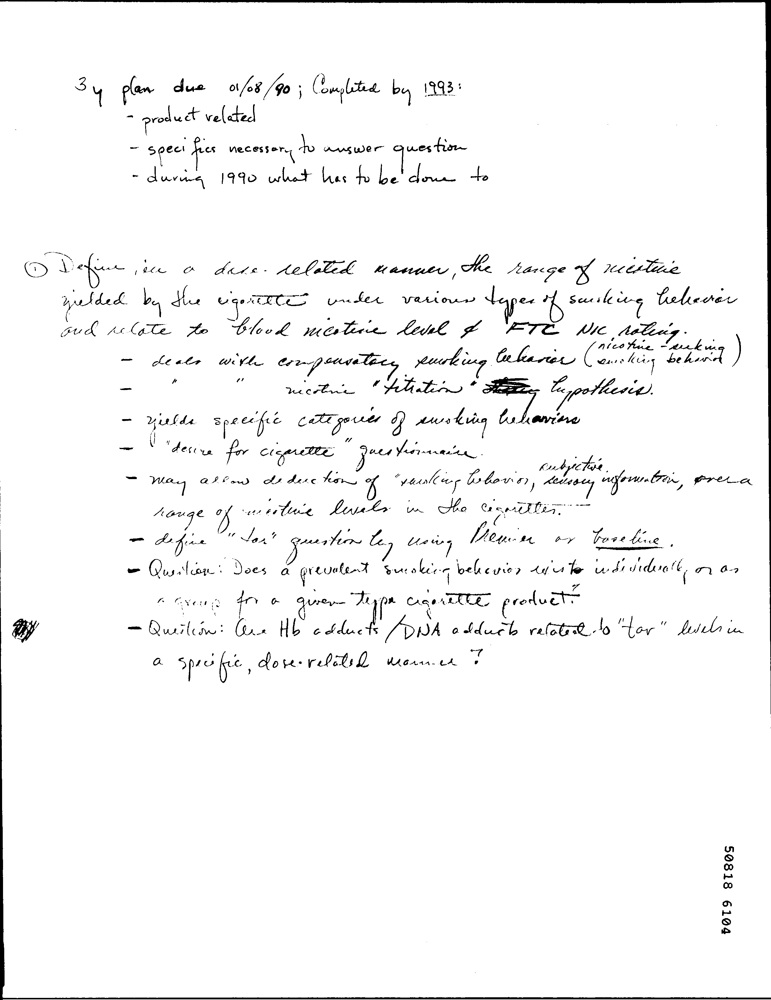 3 y plan due 01/08/90; Completed by 1993:
- product related
- specifics necessary to answer question
- during 1990 what has to be done to
① Define, in a dose-related manner, the range of nicotine
yielded by the cigarette under various types of smoking behavior
and relate to blood nicotine level & FTC Nic rating.
- deals with compensatory smoking behavior (nicotine-seeking smoking behavior)
- " " nicotine "titration" hypothesis.
- yields specific categories of smoking behaviors
- "desire for cigarette" questionnaire.
- may allow deduction of "smoking behavior, subjective sensory information, over a
range of nicotine levels in the cigarettes."
- define "tar" question by using Premier as baseline.
- Question: Does a prevalent smoking behavior exist individually, or as
a group for a given type cigarette product?
- Question: Are Hb adducts/DNA adducts related to "tar" levels in
a specific, dose-related manner?
50818 6104